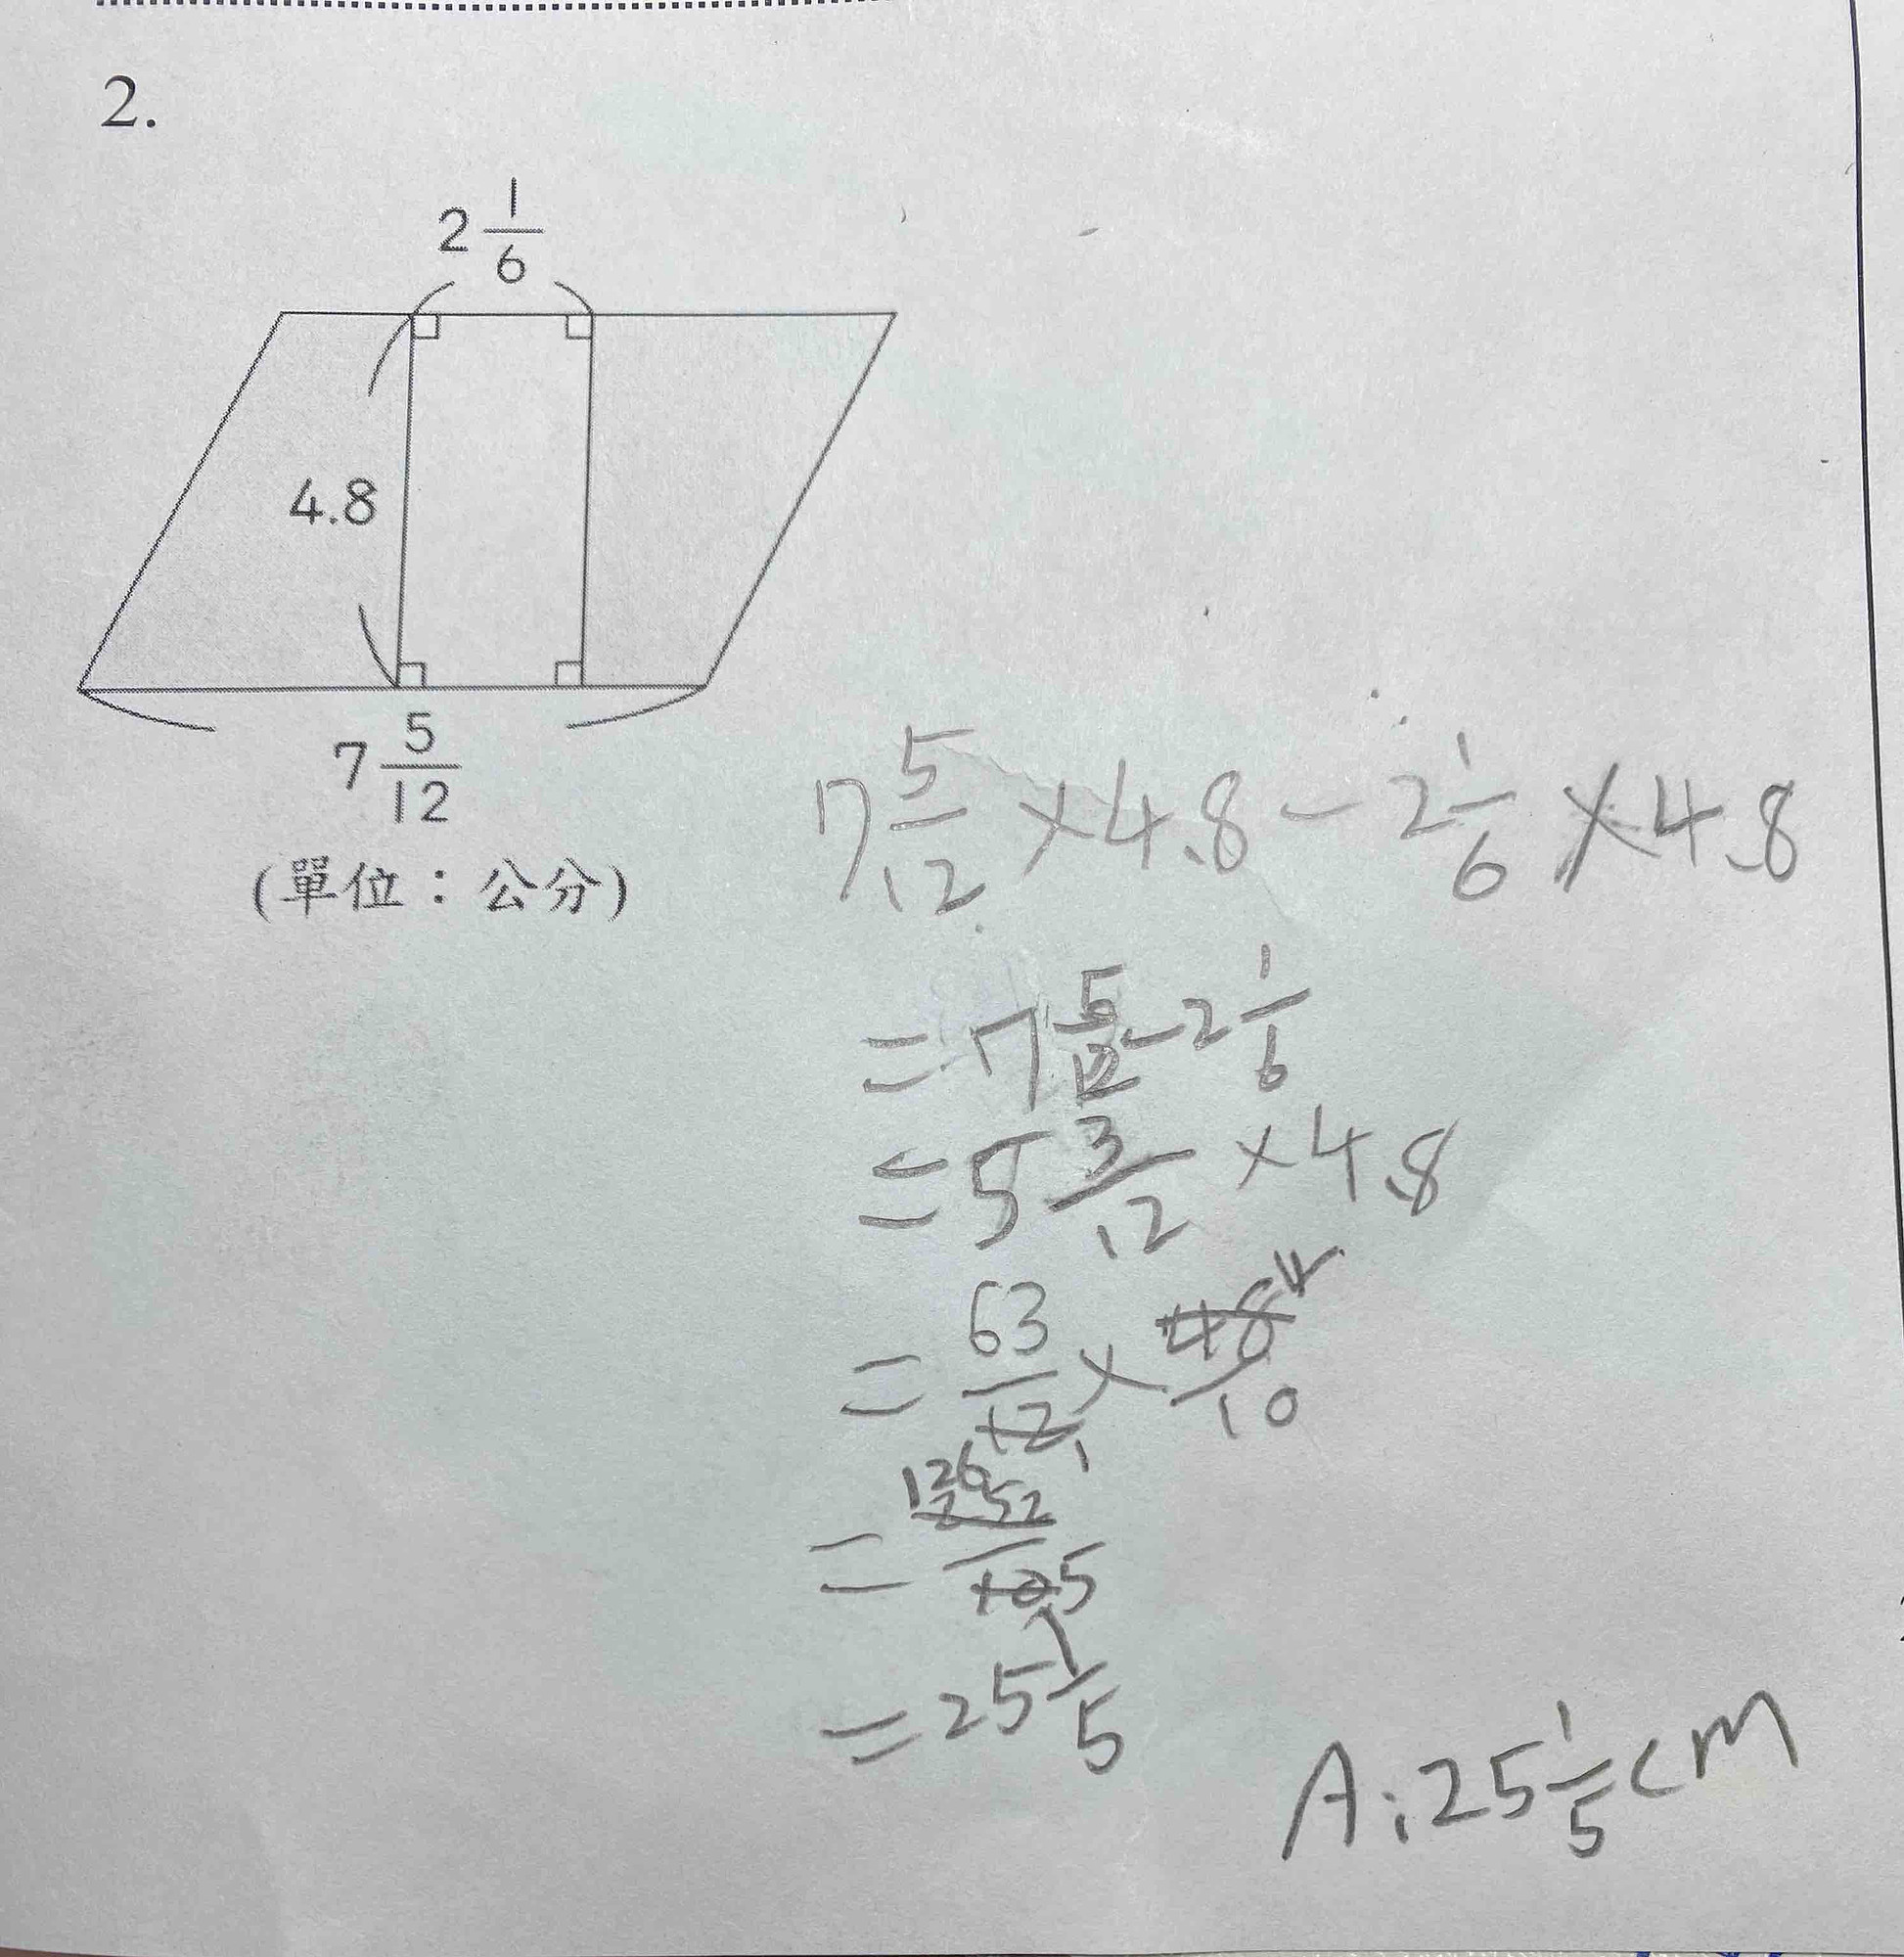 2.
2 1/6
4.8
7 5/12
(單位：公分)
7 5/12 × 4.8 - 2 1/6 × 4.8
= 7 5/12 - 2 1/6
= 5 3/12 × 4.8
= 63/12 1 × 48 4/10
= 252 126/10 5
= 25 1/5
A: 25 1/5 cm